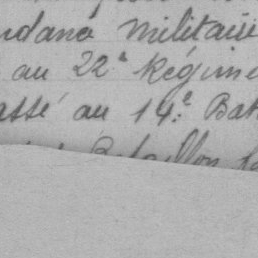 ndana militaire
au 22e Régime
assé au 14e. Bat
Bataillon